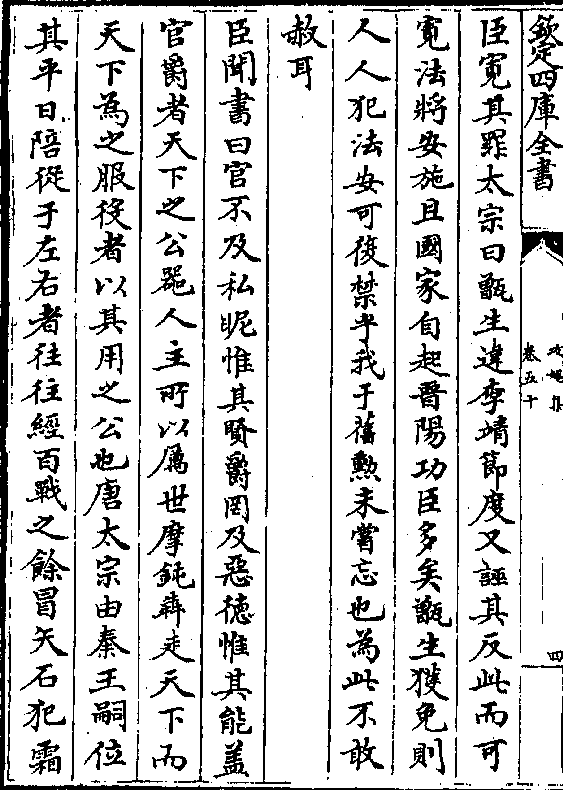 欽定四庫全書
攻媿集
卷五十
四
臣寛其罪太宗曰甑生違李靖節度又誣其反此而可
寛法將安施且國家自起晉陽功臣多矣甑生獲免則
人人犯法安可復禁乎我于舊勲未嘗忘也為此不敢
赦耳
臣聞書曰官不及私昵惟其賢爵罔及惡徳惟其能蓋
官爵者天下之公器人主所以厲世摩鈍奔走天下而
天下為之服役者以其用之公也唐太宗由秦王嗣位
其平日陪從于左右者往往經百戰之餘冒矢石犯霜